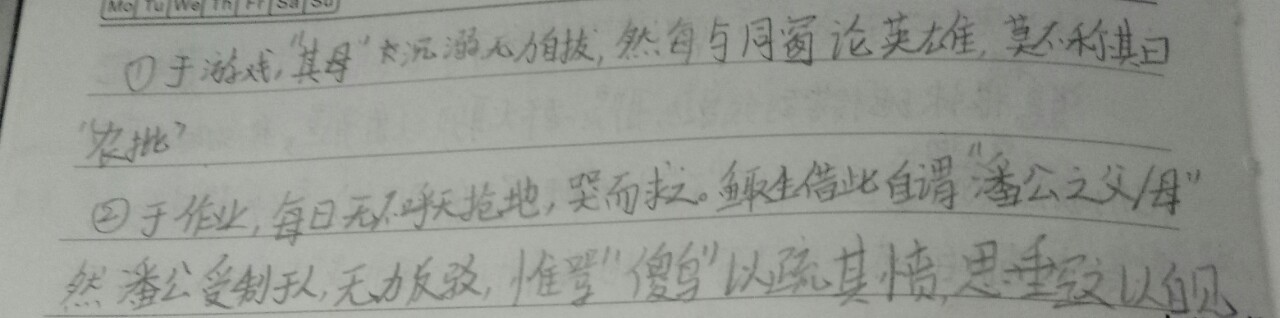 Mo Tu We Th Fr Sa Su
①于游戏,"其母"大沉溺无力自拔,然每与同窗论英雄,莫不称其曰
"农批"
②于作业,每日无不呼天抢地,哭而求之。鲰生借此自谓"潘公之父/母"
然潘公受制于人,无力反驳,惟詈"傻鸟"以疏其愤,思垂文以自见